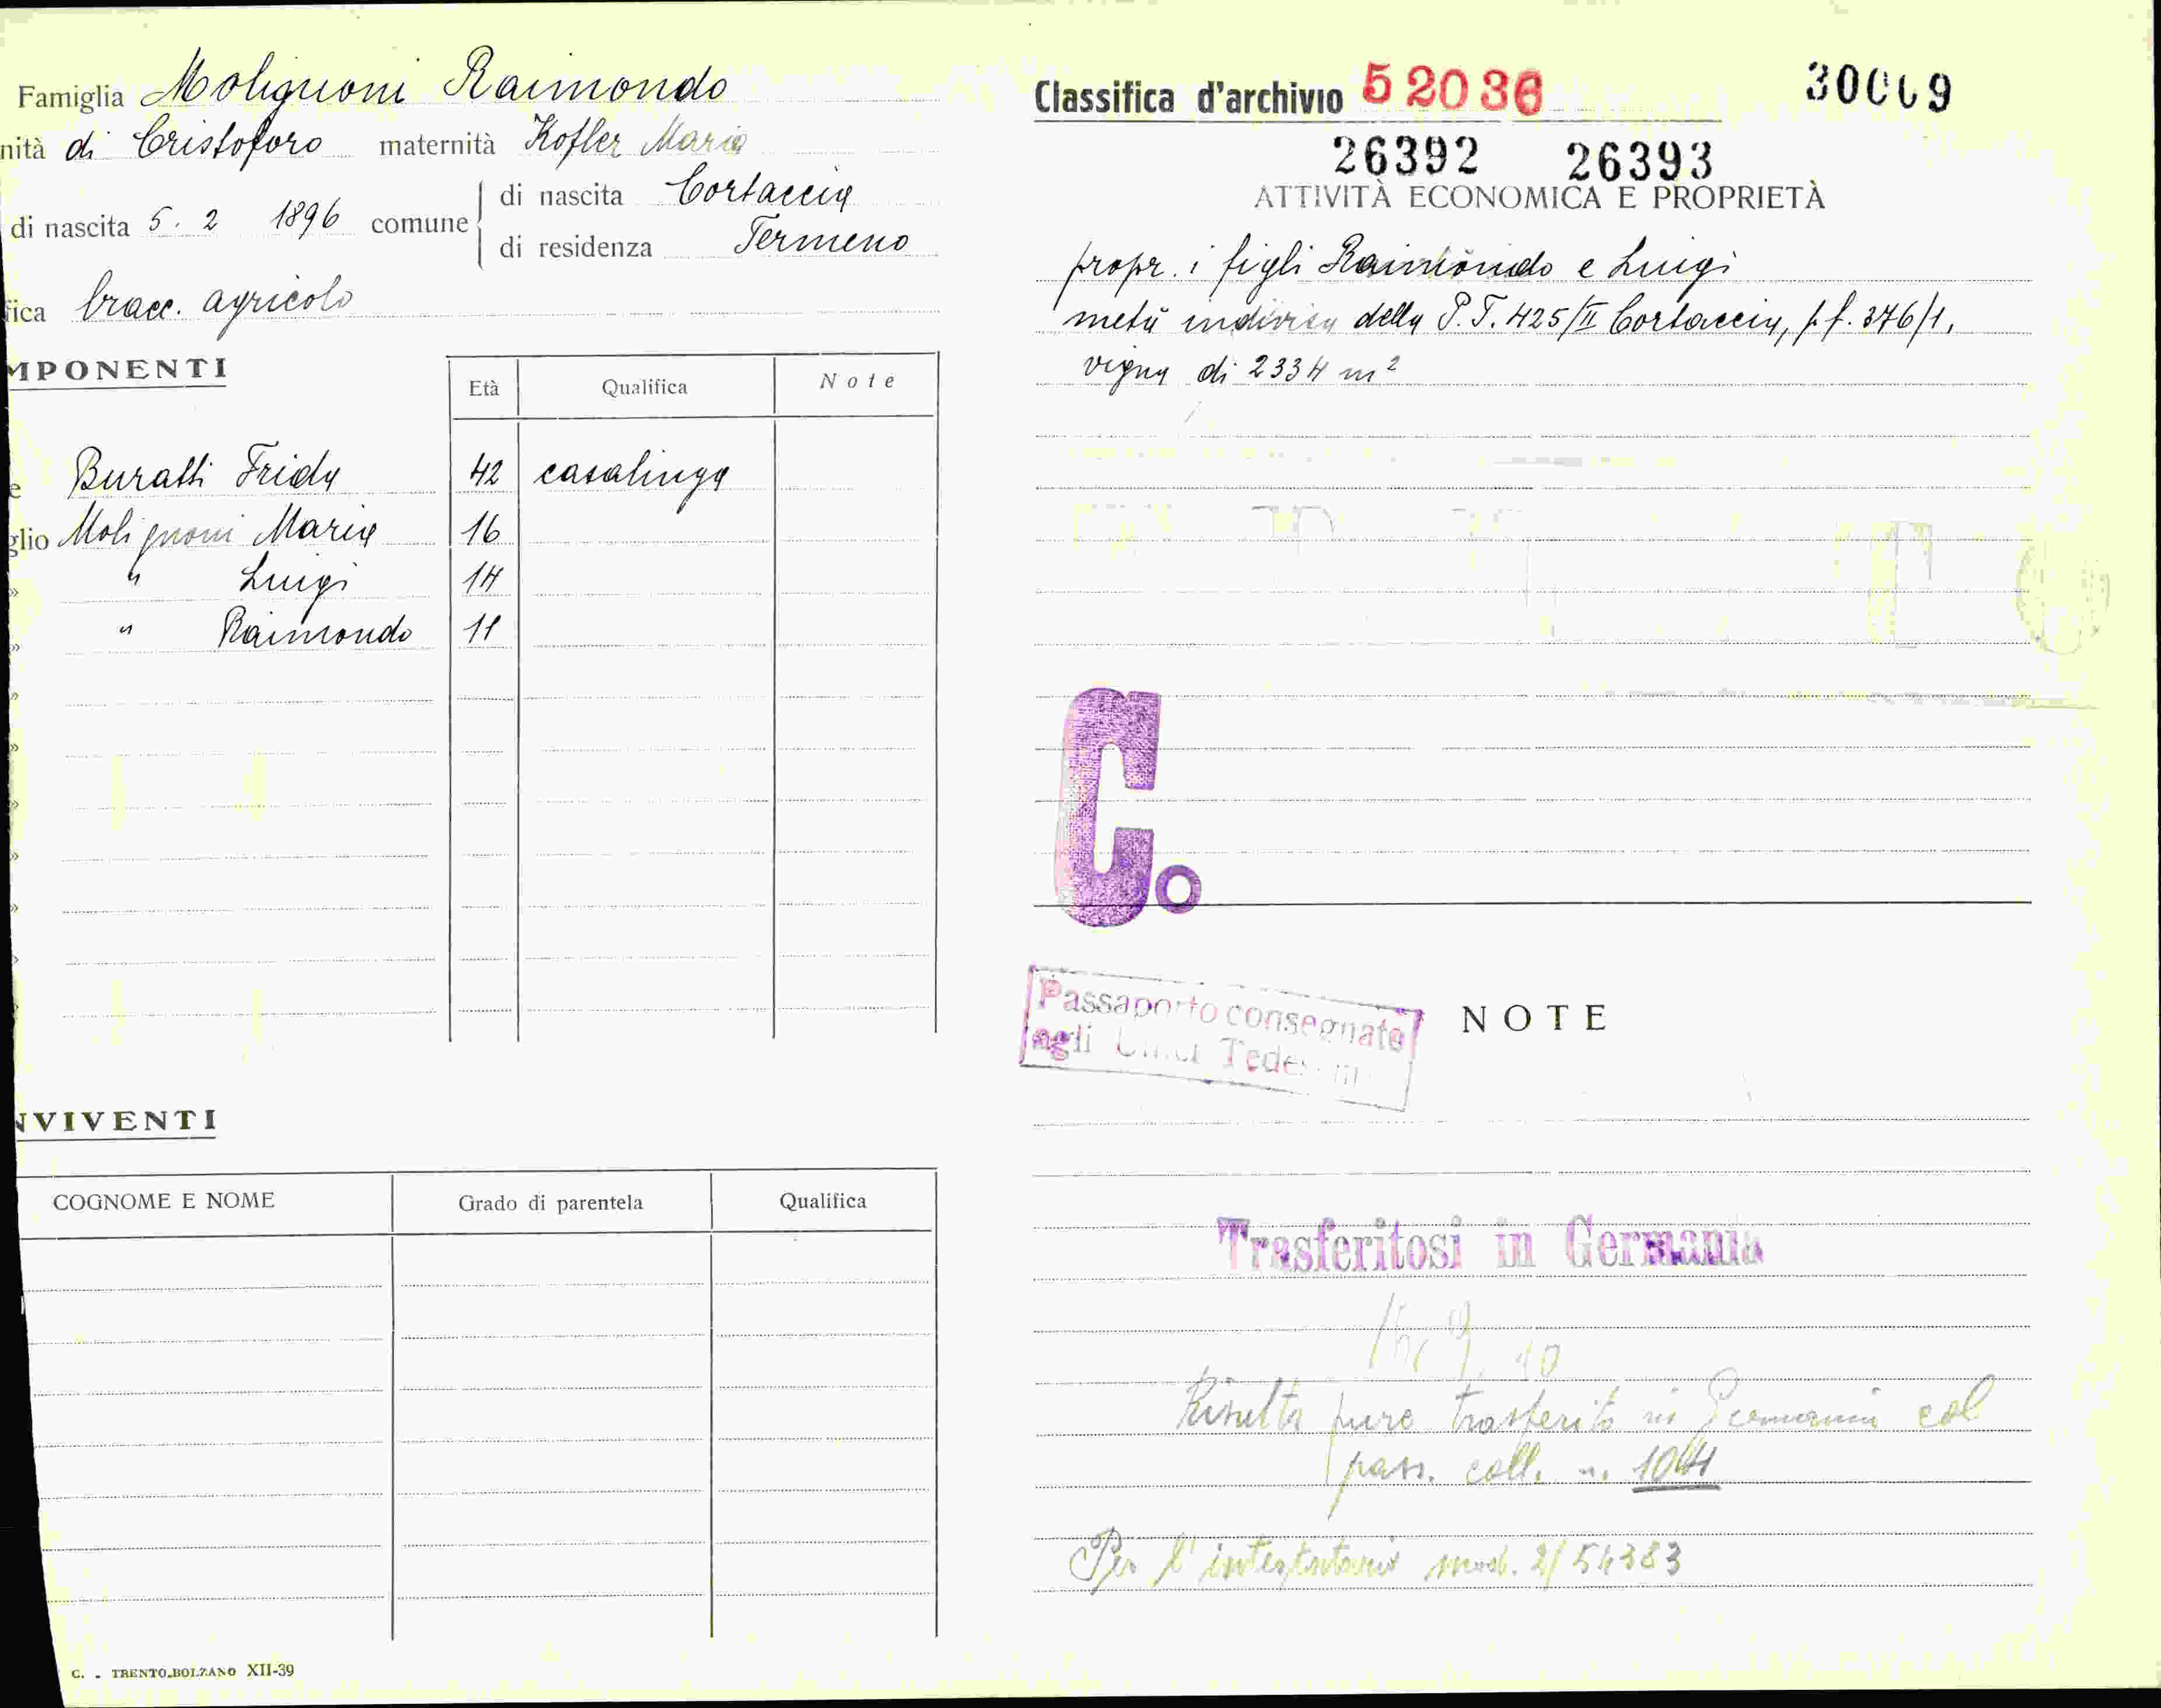 Famiglia Molignoni Raimondo
nità di Cristoforo maternità Kofler Maria
di nascita 5. 2 1896 comune
di nascita Cortaccia
di residenza Termeno
fica bracc. agricolo
MPONENTI
Età Qualifica Note
e Buratti Frida 42 casalinga
glio Molignoni Maria 16
» " Luigi 14
» " Raimondo 11
»
»
»
»
»
NVIVENTI
COGNOME E NOME Grado di parentela Qualifica
C. - TRENTO-BOLZANO XII-39
Classifica d'archivio 52036 30009
26392 26393
ATTIVITÀ ECONOMICA E PROPRIETÀ
propr. i figli Raimondo e Luigi
metà indivisa della P.T. 425/II Cortaccia, p.f. 376/1,
vigna di 2334 m²
C.
Passaporto consegnato
agli Tedeschi
NOTE
Trasferitosi in Germania
Risulta pure trasferito in Germania col
pass. coll. n. 1044
Per l'intestatario mod. 2/54383